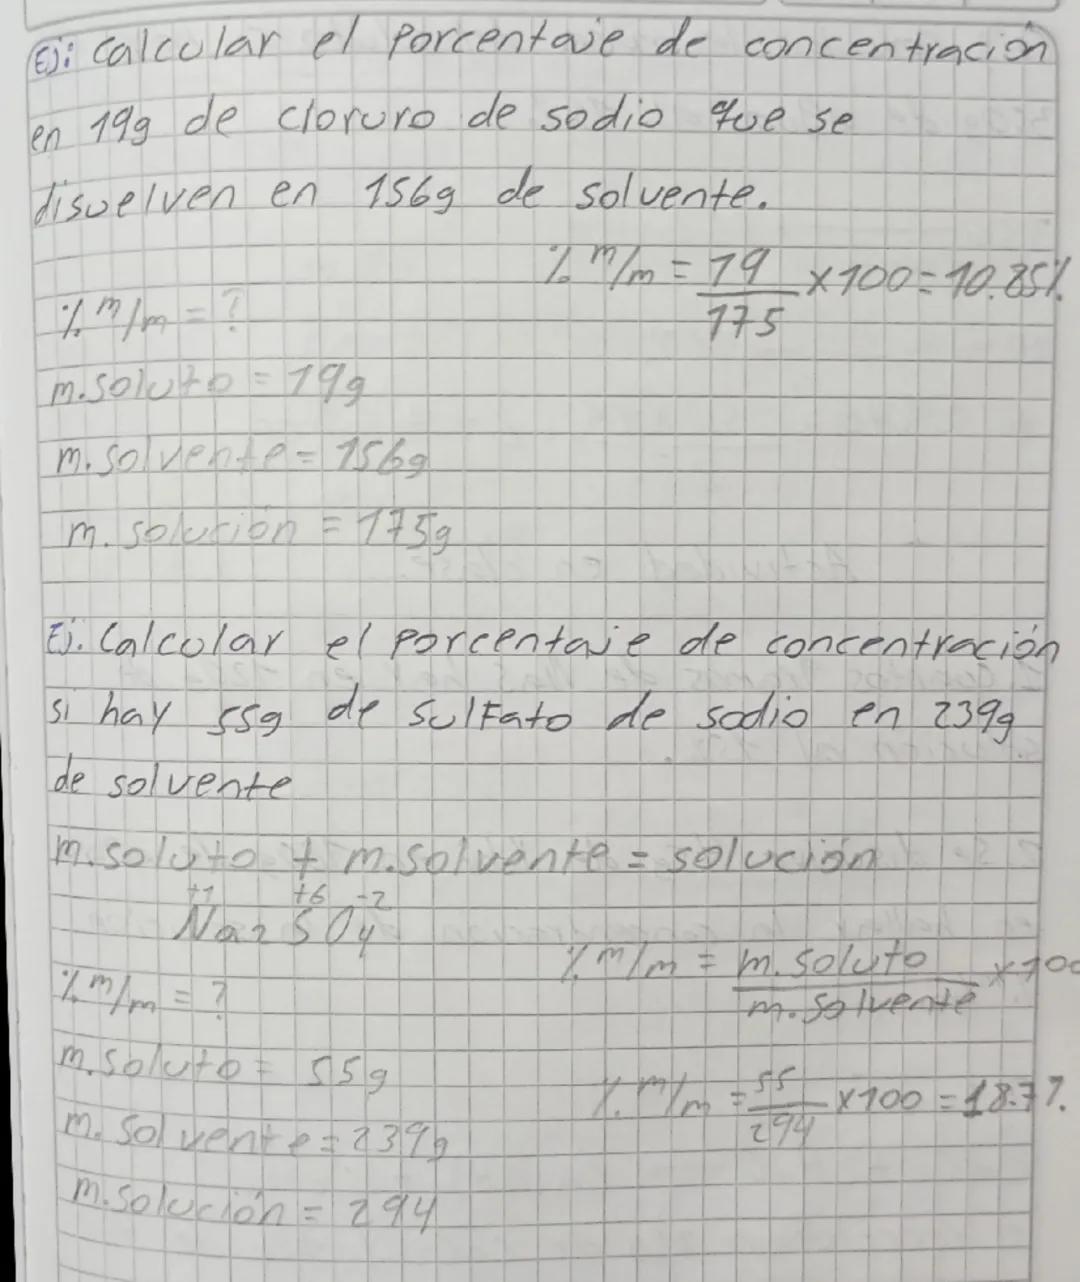 Ej: Calcular el Porcentaje de concentración
en 19g de cloruro de sodio que se
disuelven en 156g de solvente.
% m/m = 19/175 x100 = 10.85%
% m/m = ?
m.soluto = 19g
m.solvente = 156g
m. solución = 175g
Ej. Calcular el Porcentaje de concentración
si hay 55g de sulfato de sodio en 239g
de solvente
m.soluto + m.solvente = solución
+1 +6 -2
Na2SO4
% m/m = m.soluto/m.solvente x100
% m/m = ?
m.soluto = 55g
% m/m = 55/294 x100 = 18.7%
m.solvente = 239g
m.solución = 294